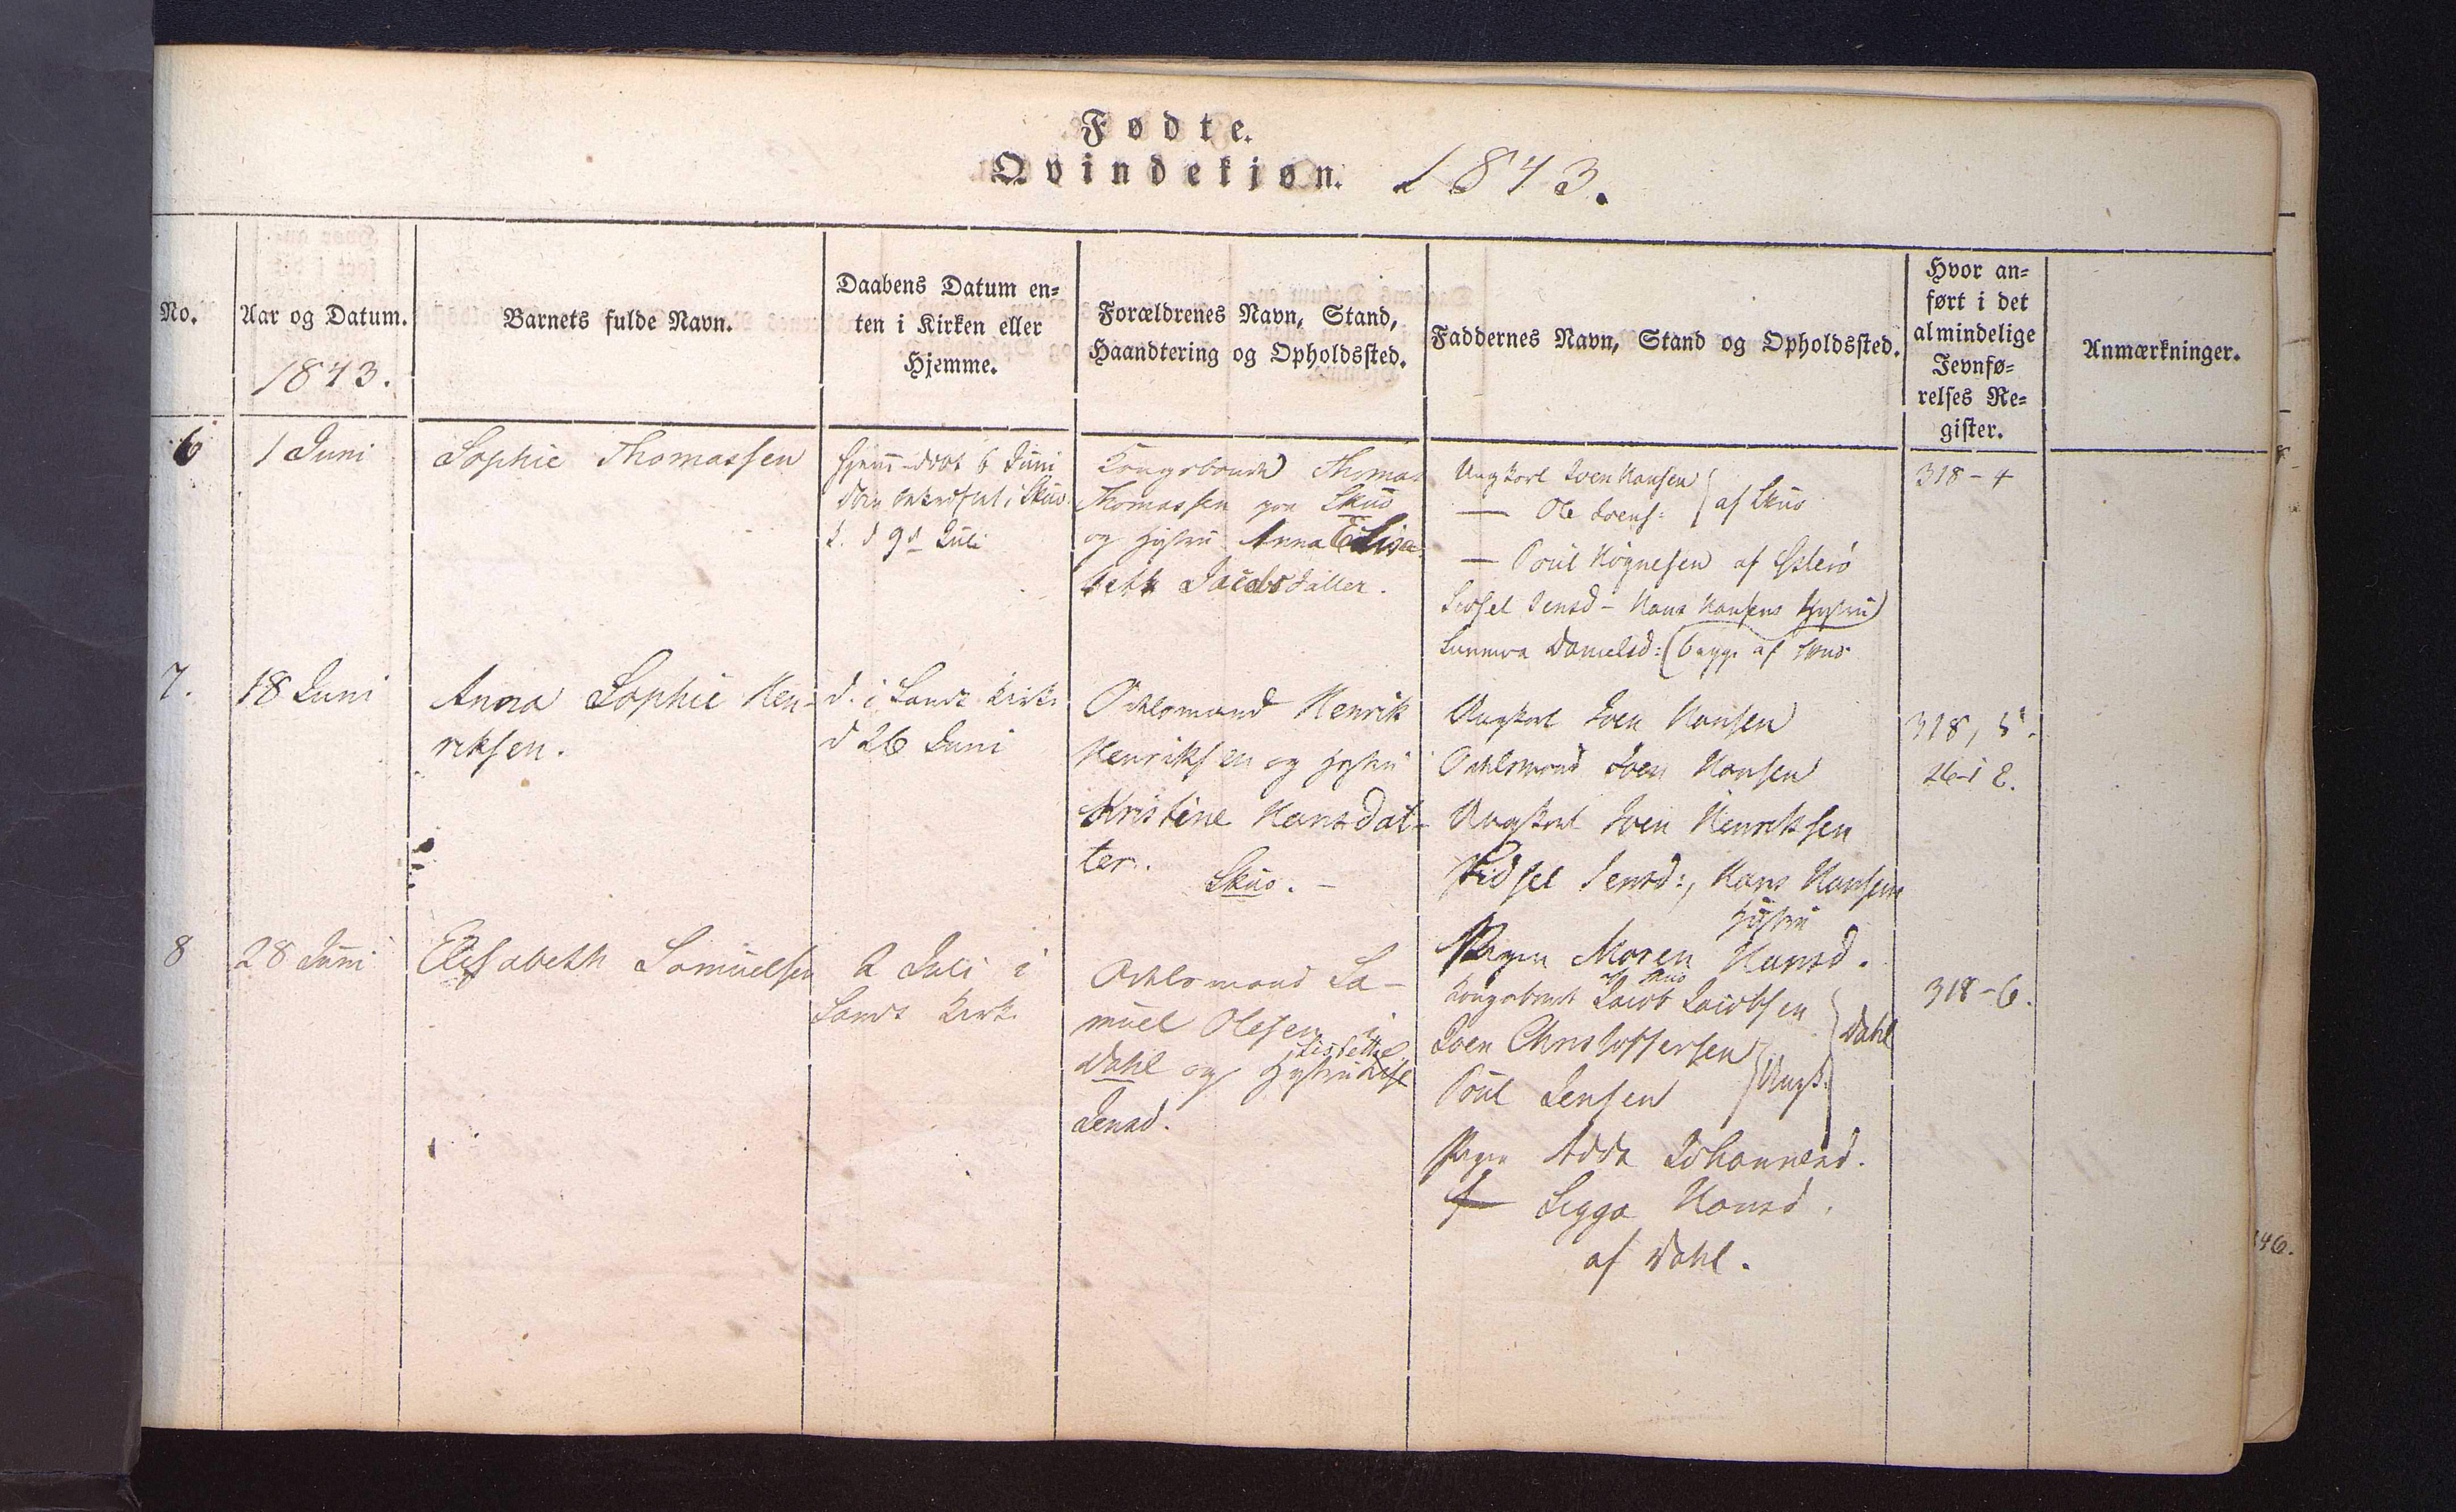 Fødte.
Qvindekjøn. 1843.
No.
Aar og Datum.
1843.
Barnets fulde Navn.
Daabens Datum en-
ten i Kirken eller
Hjemme.
Forældrenes Navn, Stand,
Haandtering og Opholdssted.
Faddernes Navn, Stand og Opholdssted.
Hvor an-
ført i det
almindelige
Jevnfø-
relses Re-
gister.
Anmærkninger.
6
1 Juni
Sophie Thomassen
Hjemmedøbt 6 Juni
i Skuø
d. 9d Juli
Kongsbonde Thomas
Thomassen paa Skuø
og Hustru Anna Elisa-
beth Jacobsdatter.
Ungkarl Joen Hansen
— Ole Joens: af Skuø
— Poul Høgnesen af
Sidsel Jensd - Hans Hansens Hustru
Sunneva Danielsd: begge af Skuø
318-4
7.
18 Juni
Anna Sophie Hen-
riksen.
d. i Sands Kirke
d 26 Juni
Odelsmand Henrik
Henriksen og Hustru
Kristine Hansdat-
ter.
Skuø. -
Ungkarl Joen Hansen
Odelsmand Joen Hansen
Ungkarl Joen Henriksen
Sidsel Jensd:, Hans Hansens
Hustru
Pigen Maren Hansd.
af Skuø
318, 5.
8
28 Juni
Elisabeth Samuelsen
2 Juli i
Sands Kirke
Odelsmand Sa-
muel Olesen i
Lisbeth
Dahl og Hustru
Jensd.
Kongsbonde Jacob Jacobsen
Joen Christoffersen
Poul Jensen
Ungk:
Dahl
Pigen Adda Johannesd.
— Sigga Hansd.
af Dahl.
318-6.